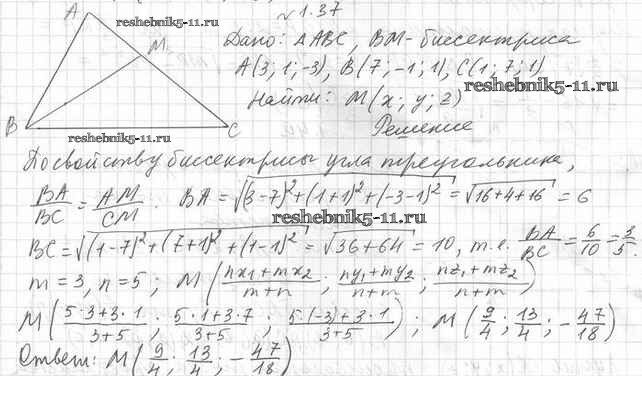 № 1.37
A
reshebnik5-11.ru
M
Дано: △ABC, BM - биссектриса
A(3; 1; -3), B(7; -1; 1), C(1; 7; 1)
reshebnik5-11.ru
Найти: M(x; y; z)
B
C
reshebnik5-11.ru
Решение
По свойству биссектрисы угла треугольника,
BA/BC = AM/CM. BA = √((3-7)² + (1+1)² + (-3-1)²) = √(16+4+16) = 6
reshebnik5-11.ru
BC = √((1-7)² + (7+1)² + (1-1)²) = √(36+64) = 10, т.е. BA/BC = 6/10 = 3/5.
m = 3, n = 5; M((nx₁+mx₂)/(m+n); (ny₁+my₂)/(n+m); (nz₁+mz₂)/(n+m))
M((5·3+3·1)/(3+5); (5·1+3·7)/(3+5); (5·(-3)+3·1)/(3+5)); M(9/4; 13/4; -47/18)
Ответ: M(9/4; 13/4; -47/18)